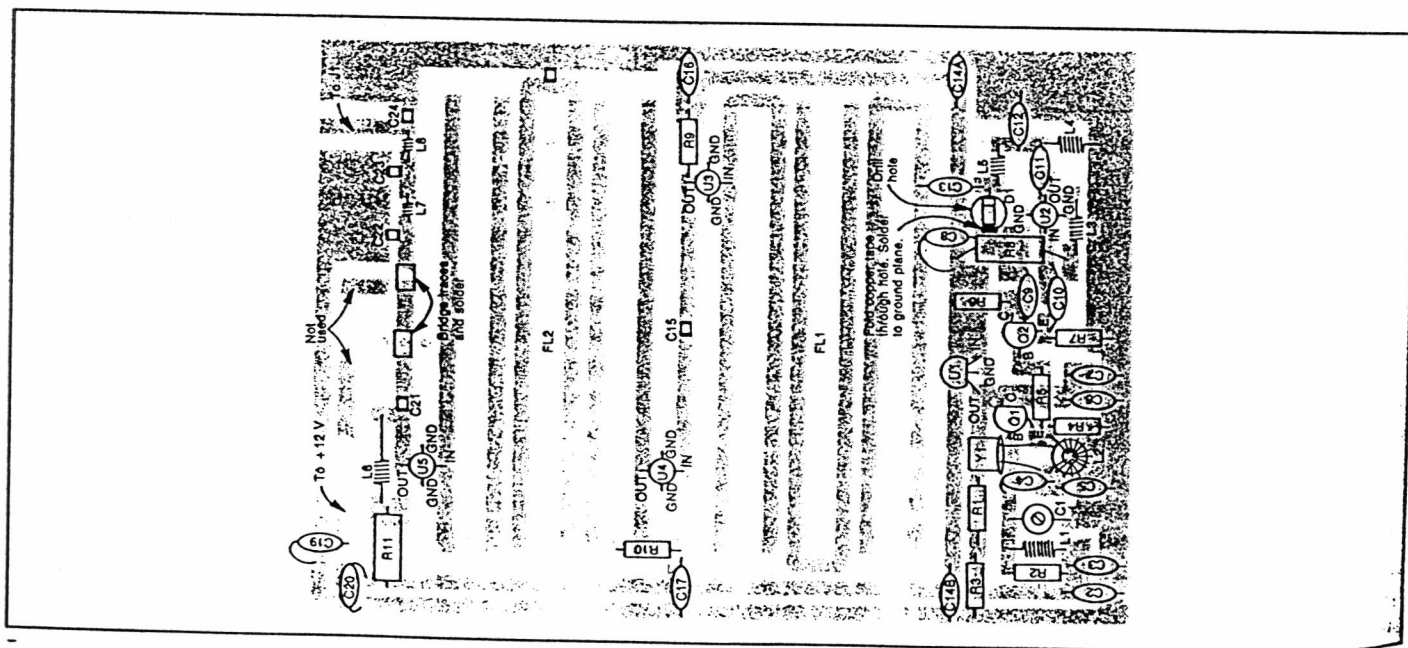 To J1
C24
L8
C23
L7
C22
Not
used
Bridge traces
and solder
C21
To +12 V
L6
OUT
U5
GND
GND
IN
R11
C19
C20
FL2
C16
R9
OUT
U3
GND
GND
IN
C15
OUT
U4
GND
GND
IN
R10
C17
FL1
Fold copper tape
through hole. Solder
to ground plane.
Drill
hole
C14A
C12
L4
L5
C13
C11
D1
OUT
GND
U2
GND
IN
L3
R8
C9
C10
C
Q2
E
B
R7
IN
U1
GND
OUT
R5
C
Q1
B
E
R4
Y1
L2
R1
C1
L1
R3
R2
C14B